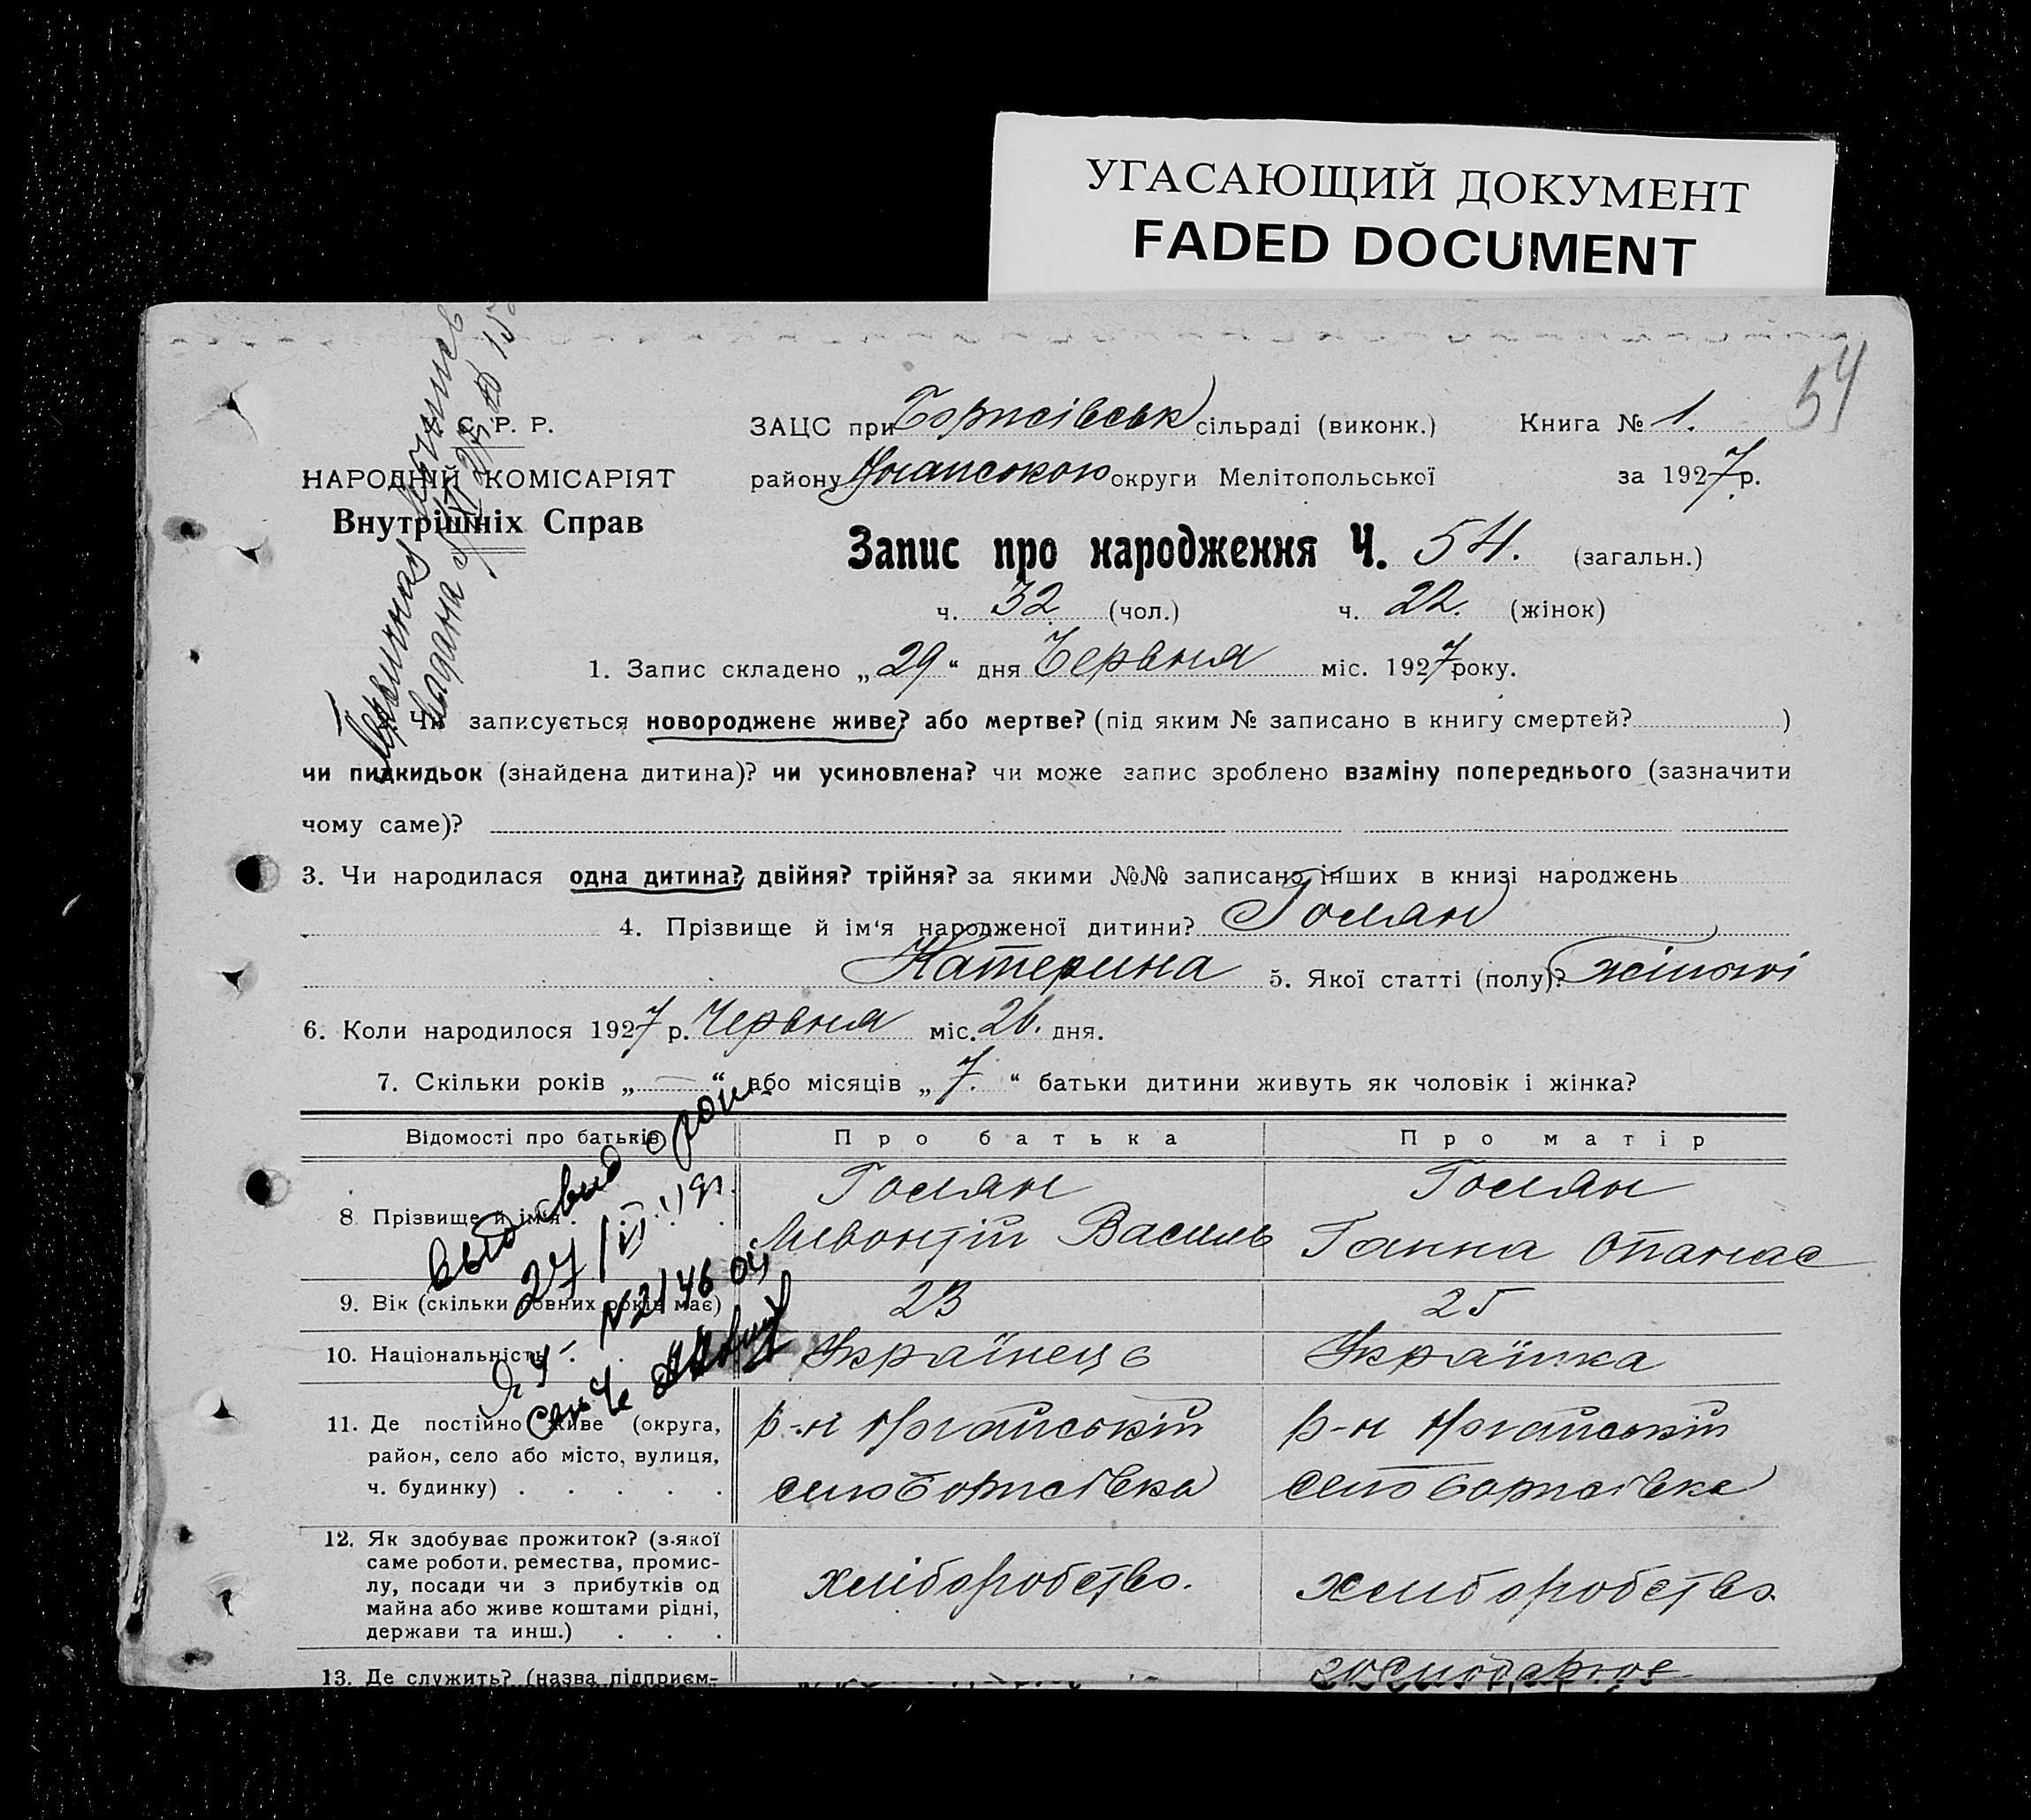 УГАСАЮЩИЙ ДОКУМЕНТ
FADED DOCUMENT
54
С. Р. Р.
НАРОДНІЙ КОМІСАРІЯТ
Внутрішніх Справ
ЗАЦС при Борисівськ сільраді (виконк.) Книга № 1.
району округи Мелітопольської за 1927 р.
Запис про народження Ч. 54. (загальн.)
ч. 32 (чол.) ч. 22. (жінок)
1. Запис складено „29“ дня Червня міс. 1927 року.
Чи записується новороджене живе? або мертве? (під яким № записано в книгу смертей? )
чи пидкидьок (знайдена дитина)? чи усиновлена? чи може запис зроблено взаміну попереднього (зазначити
чому саме)?
3. Чи народилася одна дитина? двійня? трійня? за якими №№ записано інших в книзі народжень
4. Прізвище й ім‘я народженої дитини? Гослян
Катерина 5. Якої статті (полу)? жіночі
6. Коли народилося 1927 р. Червня міс. 26. дня.
7. Скільки років „—“ або місяців „7.“ батьки дитини живуть як чоловік і жінка?
Відомості про батьків Про батька Про матір
8 Прізвище й імія . Гослян Гослян
Левонтій Василь Ганна Опанас
27/VI
N2146
9. Вік (скільки повних років має) 23 25
10. Національність . Українець Українка
11. Де постійно живе (округа,
район, село або місто, вулиця,
ч. будинку) . . . . .
р-н р-н
село Борисівка село Борисівка
12. Як здобуває прожиток? (з-якої
саме роботи, ремества, промис-
лу, посади чи з прибутків од
майна або живе коштами рідні,
держави та инш.) . . .
хліборобство. хліборобство.
13. Де служить? (назва підприєм-